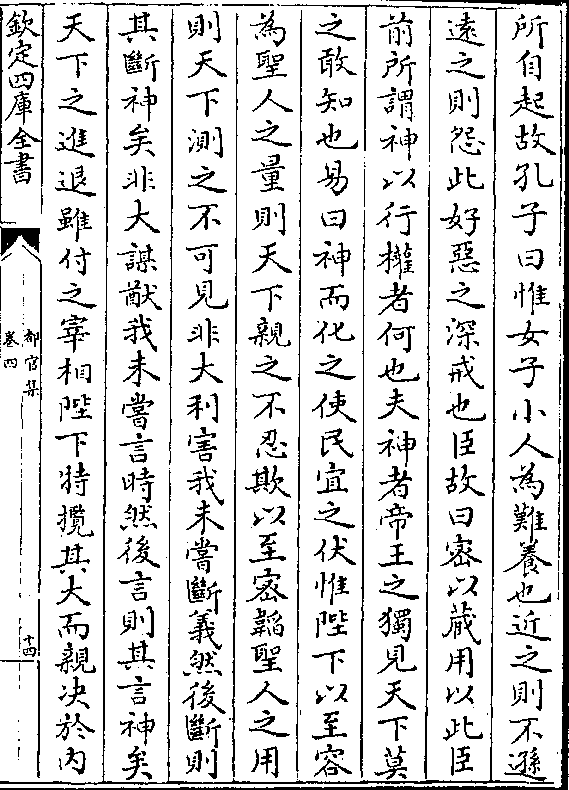 所自起故孔子曰惟女子小人為難養也近之則不遜
遠之則怨此好惡之深戒也臣故曰宻以蔵用以此臣
前所謂神以行權者何也夫神者帝王之獨見天下莫
之敢知也易曰神而化之使民宜之伏惟陛下以至容
為聖人之量則天下親之不忍欺以至宻韜聖人之用
則天下測之不可見非大利害我未嘗斷義然後斷則
其斷神矣非大謀猷我未嘗言時然後言則其言神矣
天下之進退雖付之宰相陛下特攬其大而親决於内
欽定四庫全書
都官集
卷四
十四